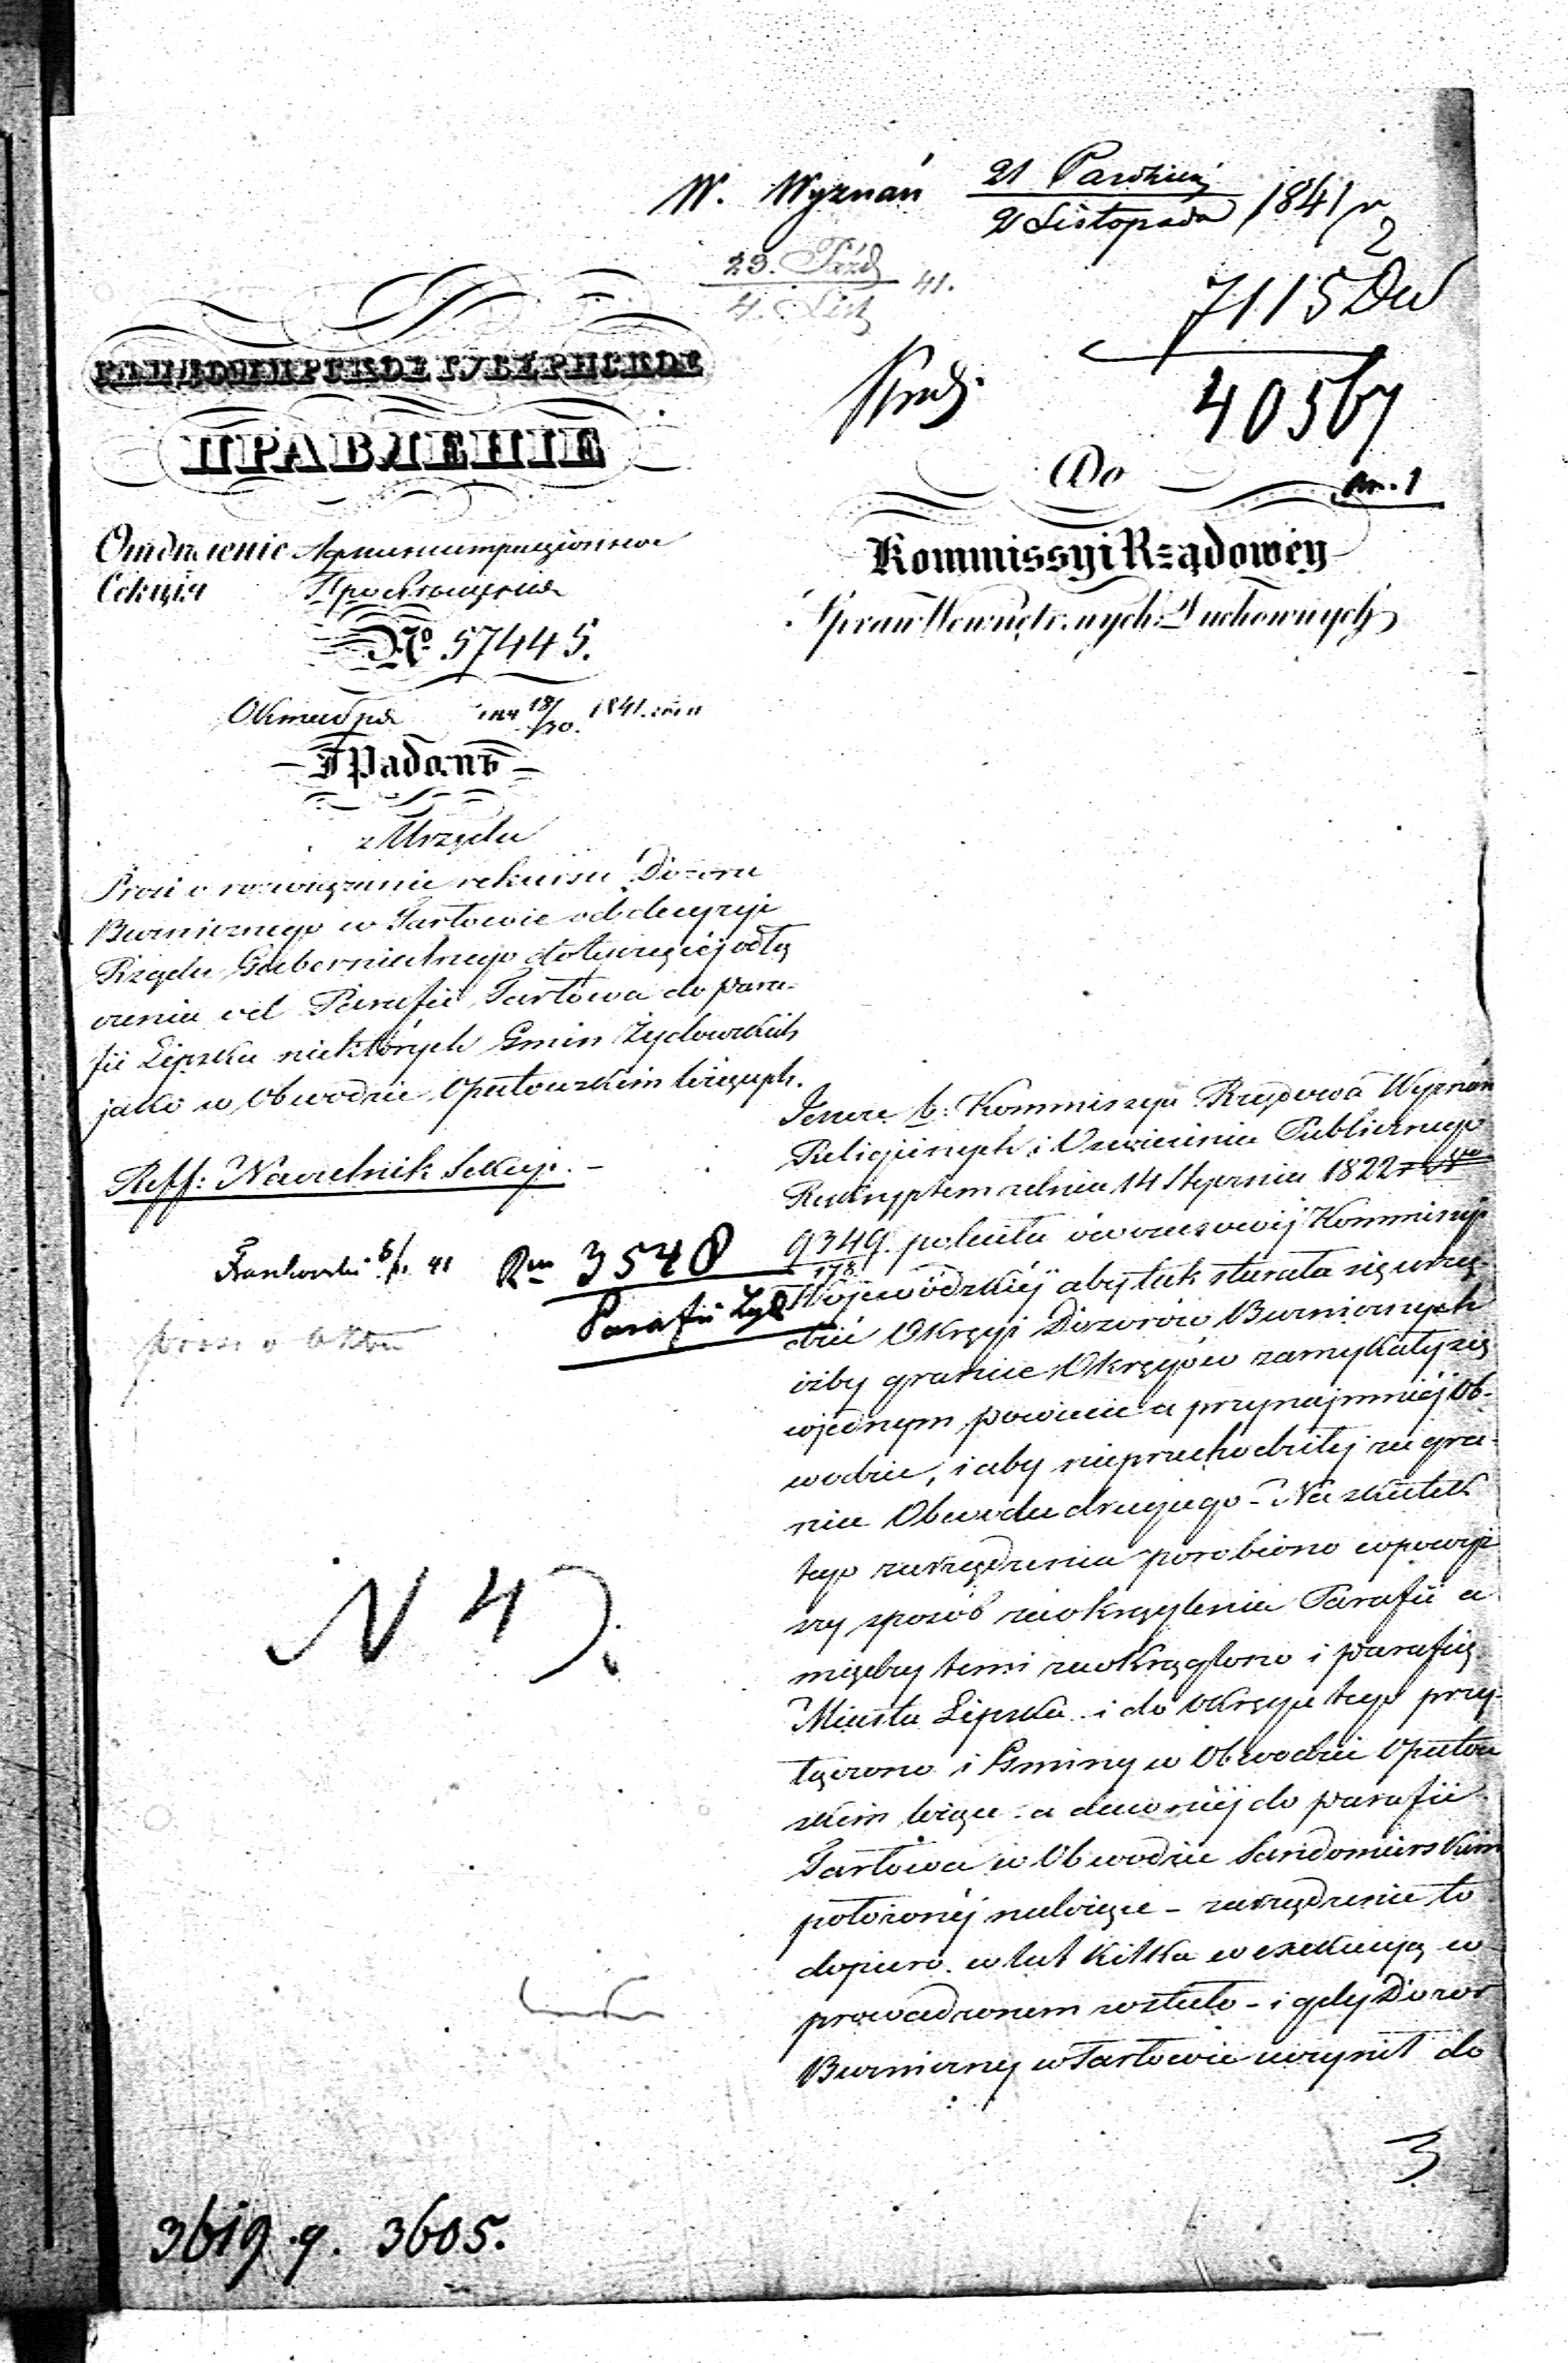 W. Wyznań 21 Paździer / 2 Listopada 1841 r
2
23. Paźd / 4. List 41.
7115 Dw
40567
САНДОМИРСКОЕ ГУБЕРНСКОЕ
ПРАВЛЕНІЕ
Отдѣленіе Административное
Секція Просвѣщенія
№ 57445.
Октября дня 18/30. 1841 года
Г Радомъ
z Urzędu
Prosi o rozwiązanie rekursu Dozoru
Bużniczego w Tarłowie od decyzyi
Rządu Gubernialnego dotyczącéj odłą
czenia od Parafii Tarłowa do para-
fii Lipska niektórych Gmin Żydowskich
jako w Obwodzie Opatowskim leżących.
Reff: Naczelnik Sekcyi. -
41 Rm 3548
Parafii Żyd
prosi o akta
N 4
3619. 9. 3605.
Do
nr. 1
Kommissyi Rządowéy
Spraw Wewnętrznych i Duchownych
Jeszcze b: Kommissya Rządowa Wyznań
Religijnych i Oświecenia Publicznego
Reskryptem z dnia 14 Stycznia 1822 r
9349/178 poleciła ówczesowéj Kommissyi
Wojewódzkiéj aby tak starała się urzą-
dzić Okręgi Dozorów Bużniczych
iżby granice Okręgów zamykały się
w jednym powiecie a przynajmniéj Ob-
wodzie, i aby nieprzechodziły za gra-
nice Obwodu drugiego - Na skutek
tego zarządzenia porobiono w powyż
szy sposób zaokrąglenia Parafii a
między temi zaokrąglono i parafię
Miasta Lipska i do okręgu tego przy-
łączono i Gminy w Obwodzie Opatow
skim leżące a dawniéj do parafii
Tarłowa w Obwodzie Sandomierskim
położonéj należące - zarządzenie to
dopiero w lat kilka w exekucyą w
prowadzonem zostało - i gdy Dozór
Bużniczny w Tarłowie uczynił do
3